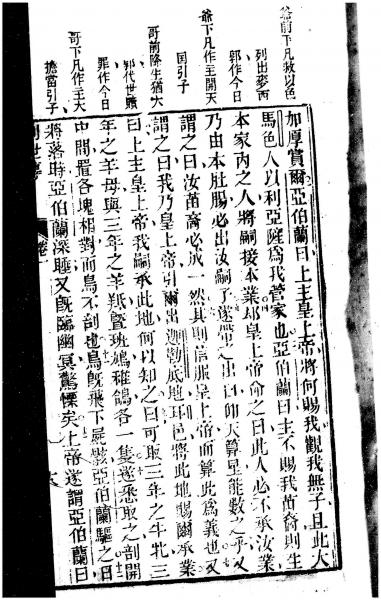 爺前下凡救以色
列出麥西
郭作今日
爺下凡作主開天
国引子
哥前降生猶大
郭代世贖
罪作今日
哥下凡作主大
擔當引子
加厚賞爾亞伯蘭曰上主皇上帝將何賜我觀我無子且此大
馬色人以利亞薩為我管家也亞伯蘭曰主不賜我苗裔則生
本家內之人將嗣接本業却皇上帝命之曰此人必不承汝業
乃由本肚腸必出汝嗣了遂帶之出曰仰天算星能數之乎又
謂之曰汝苗裔必成一然其則信服皇上帝而算此為義也又
謂之曰我乃皇上帝引爾出迦勒底耳邑將此地賜爾承業
曰上主皇上帝我嗣承此地何以知之曰可取三年之牛牝三
年之羊母與三年之羊羝曁班鳩雉鴿各一隻遂取之剖開
中間置各塊相對而鳥不剖也鳥既飛下屍骸亞伯蘭驅之日
將落時亞伯蘭深睡又既臨幽冥驚慄矣上帝遂謂亞伯蘭曰
卷一